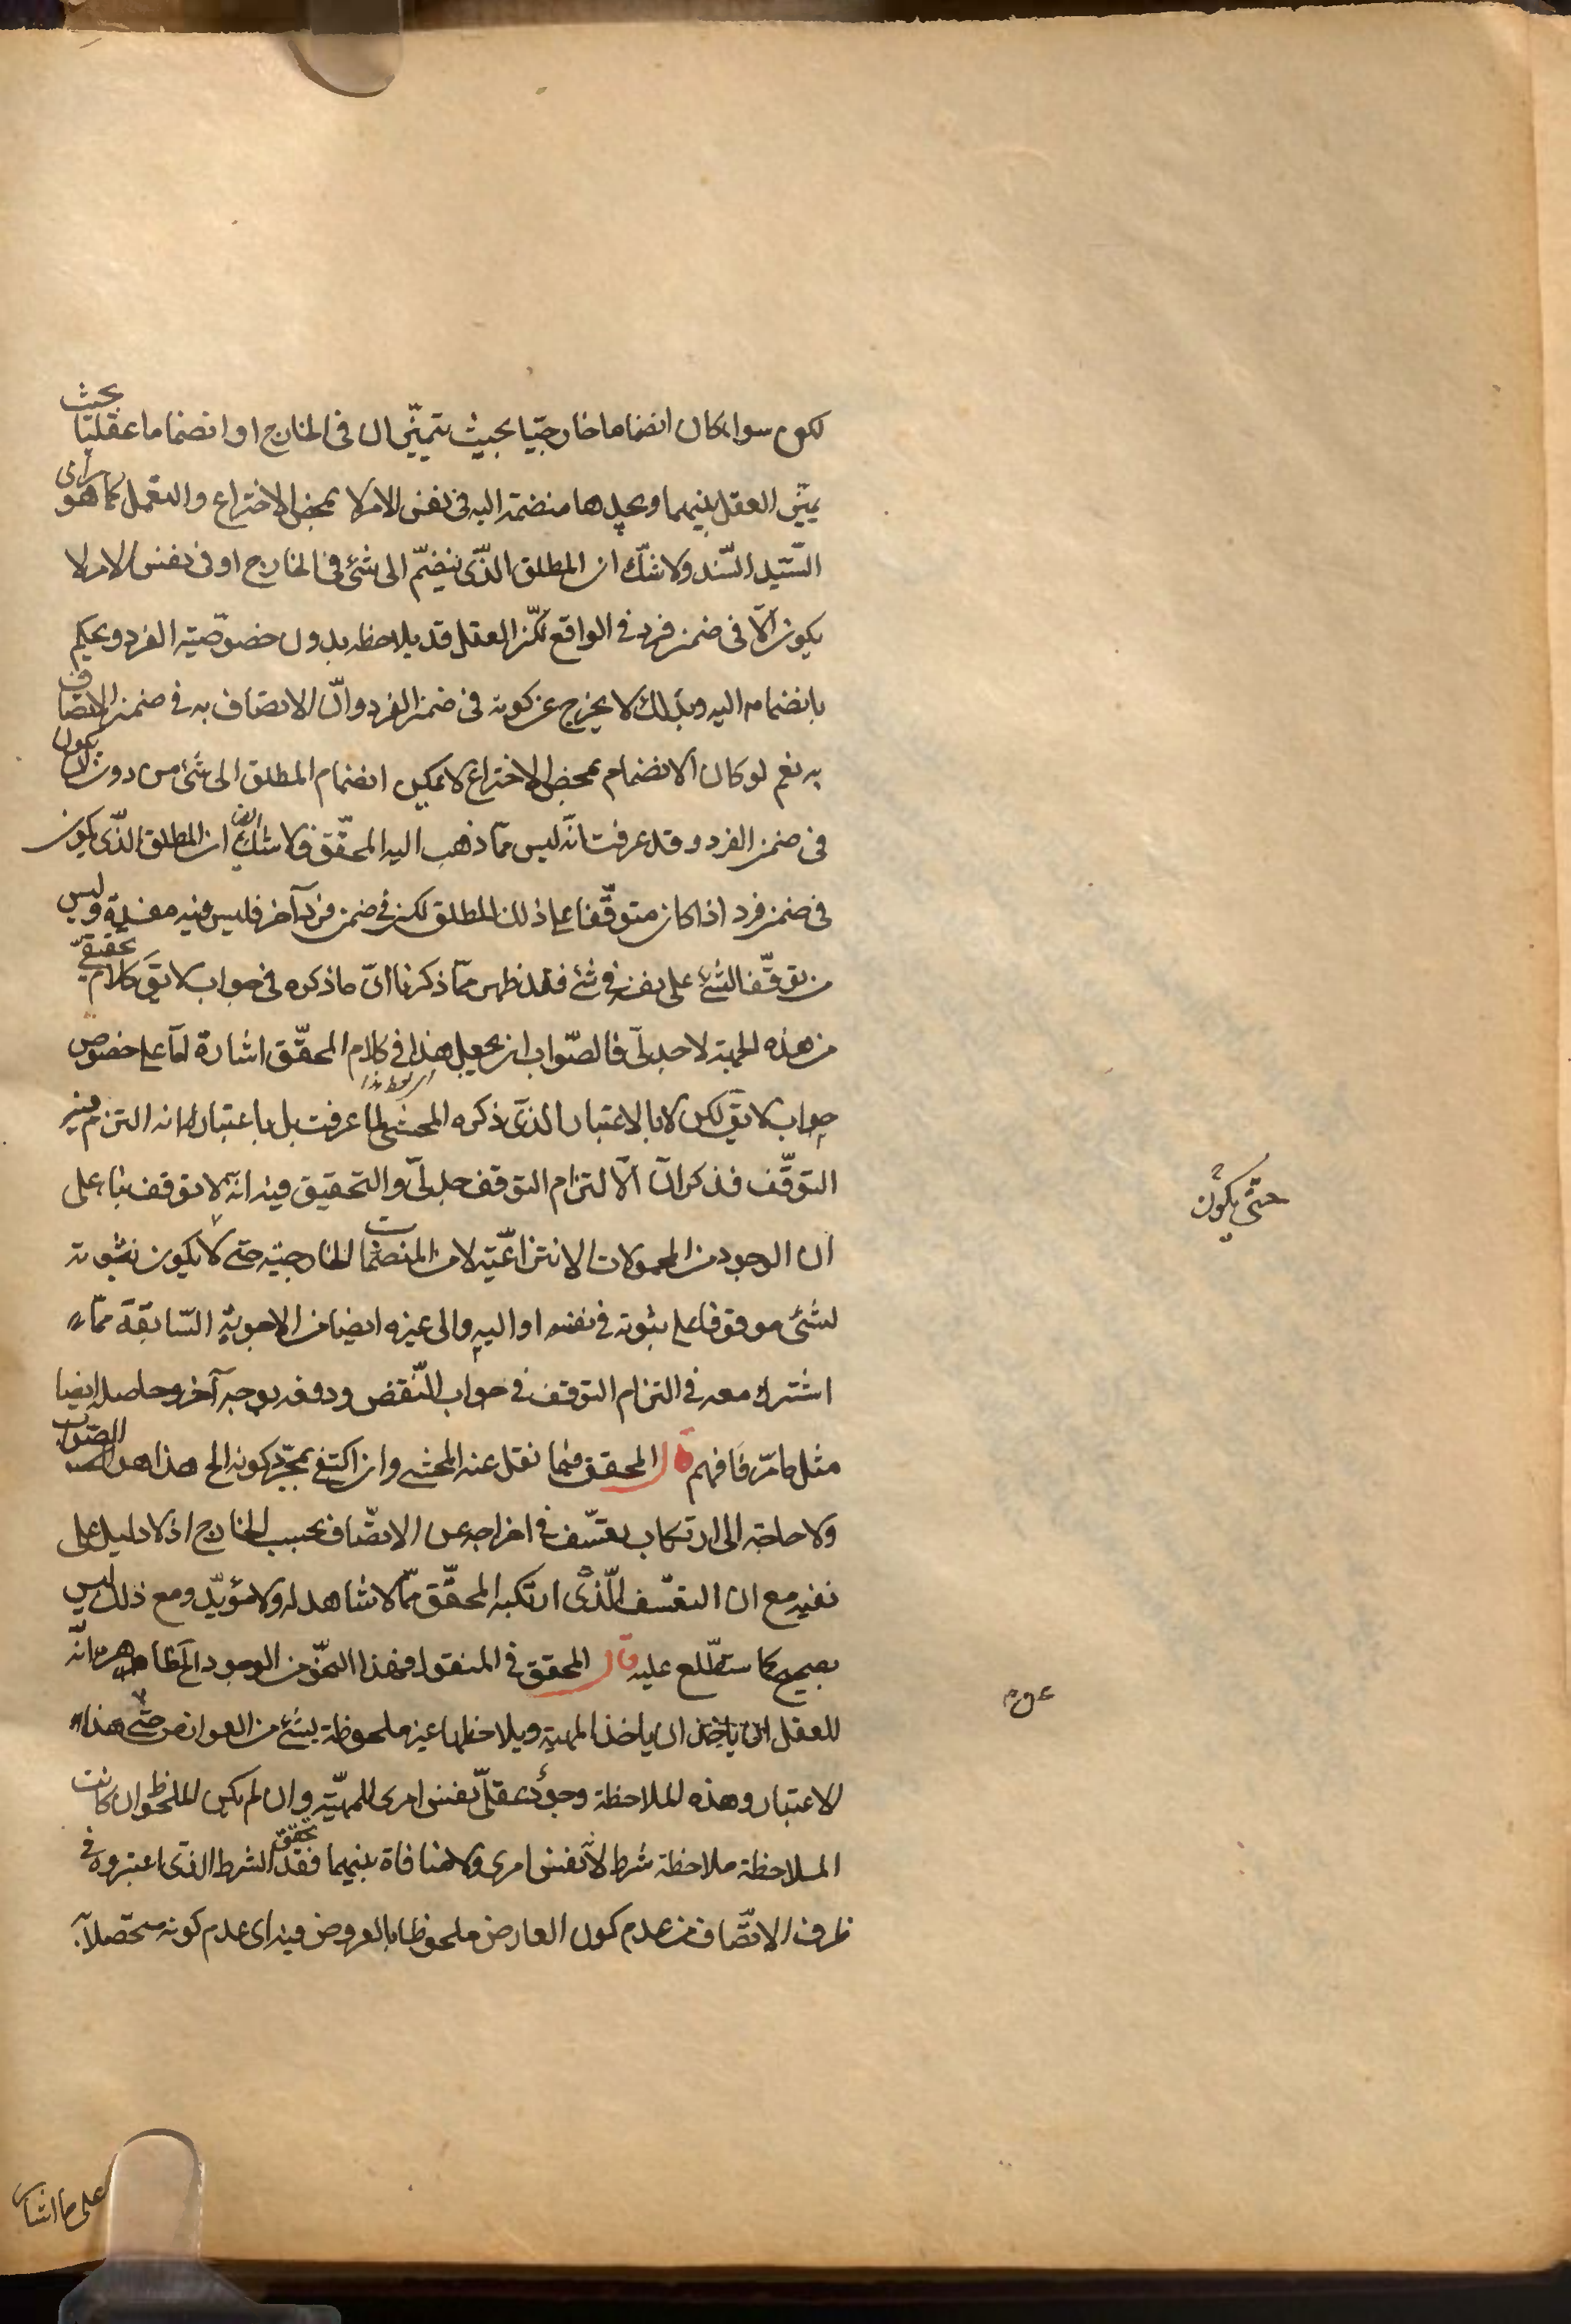 سواء كان انضماما خارجيّا بحيث يتميّزان فى الخارج او انضماما عقليّا بحيث
يميّز العقل بينهما ويجدها منضمة اليه فى نفس الامر لا بمحض الاختراع والتعمل كما هو راى
السّيّد السّند ولا شكّ ان المطلق الذّى ينضمّ الى شئ فى الخارج او فى نفس الامر لا
يكون الّا فى ضمن فرد فى الواقع لكنّ العقل قد يلاحظه بدون خصوصيّة الفرد ويحكم
بانضمامه اليه وبذلك لا يخرج عن كونه فى ضمن الفرد وانّ الاتصاف به فى ضمن الاتصاف
به نعم لو كان الانضمام بمحض الاختراع لا يمكن انضمام المطلق الى شئ من دون ان يكون
فى ضمن الفرد وقد عرفت انّه ليس ممّا ذهب اليه المحقّق فلا شكّ ان المطلق الذّى يكون
فى ضمن فرد اذا كان متوقّفا على ذلك المطلق لكن فى ضمن فرد آخر فليس فيه مفسدة وليس
من توقّف الشئ على نفسه فى شئ فقد ظهر ممّا ذكرنا انّ ما ذكره فى جواب لا يقَ كلام تحقيقىّ
من هذه الجهة لا جدلىّ فالصّواب ان يجعل هذا فى كلام المحقّق اشارة امّا على خصوص
جواب لا يقَ لكن لا بالاعتبار الذى ذكره المحشى لما عرفت بل باعتبار انه التزم فيه
التوقّف فذكر انّ الّالتزام التوقف جدلىّ والتحقيق فيه انّه لا توقف بناء على
ان الوجود من المحمولات الانتزاعيّة لا من المنضمات الخارجيّة حتى لا يكون ثبوته
لشئ موقوفا على ثبوته فى نفسه او اليه والى غيره ايضا من الاجوبة السّابقة ممّا
اشترك معه فى التزام التوقف فى جواب النّقض ودفعه بوجه آخر وحاصله ايضا
مثل ما مرّ فافهم قال المحقق فيما نقل عنه المحشى وان اكتفى بمجرّد كونه الخ هذا هو الصّواب
ولا حاجة الى ارتكاب تعسّف فى اخراجه عن الاتصّاف بحسب الخارج اذ لا دليل على
نفيه مع ان التعسّف الّذى ارتكبه المحقّق ممّا لا شاهد له ولا مؤيّد ومع ذلك ليس
بصحيح كما ستطّلع عليه قال المحقق فى المنقول فهذا النحو من الوجود الخ ظاهره انّه
للعقل ان ياخذ ان ياخذ المهية ويلاحظها غير ملحوظة بشئ من العوارض حتّى هذا
الاعتبار وهذه الملاحظة وجود عقلىّ نفس امرى للمهيّة وان لم يكن الملحوظ وان كانت
الملاحظة ملاحظة شرط لا نفس امرى ولا منافاة بينهما فقد تحقق الشرط الذى اعتبروه فى
ظرف الاتصّاف من عدم كون العارض ملحوظا بالعروض فيه اى عدم كونه متحصّلا
حتّى يكون
على ما اشار